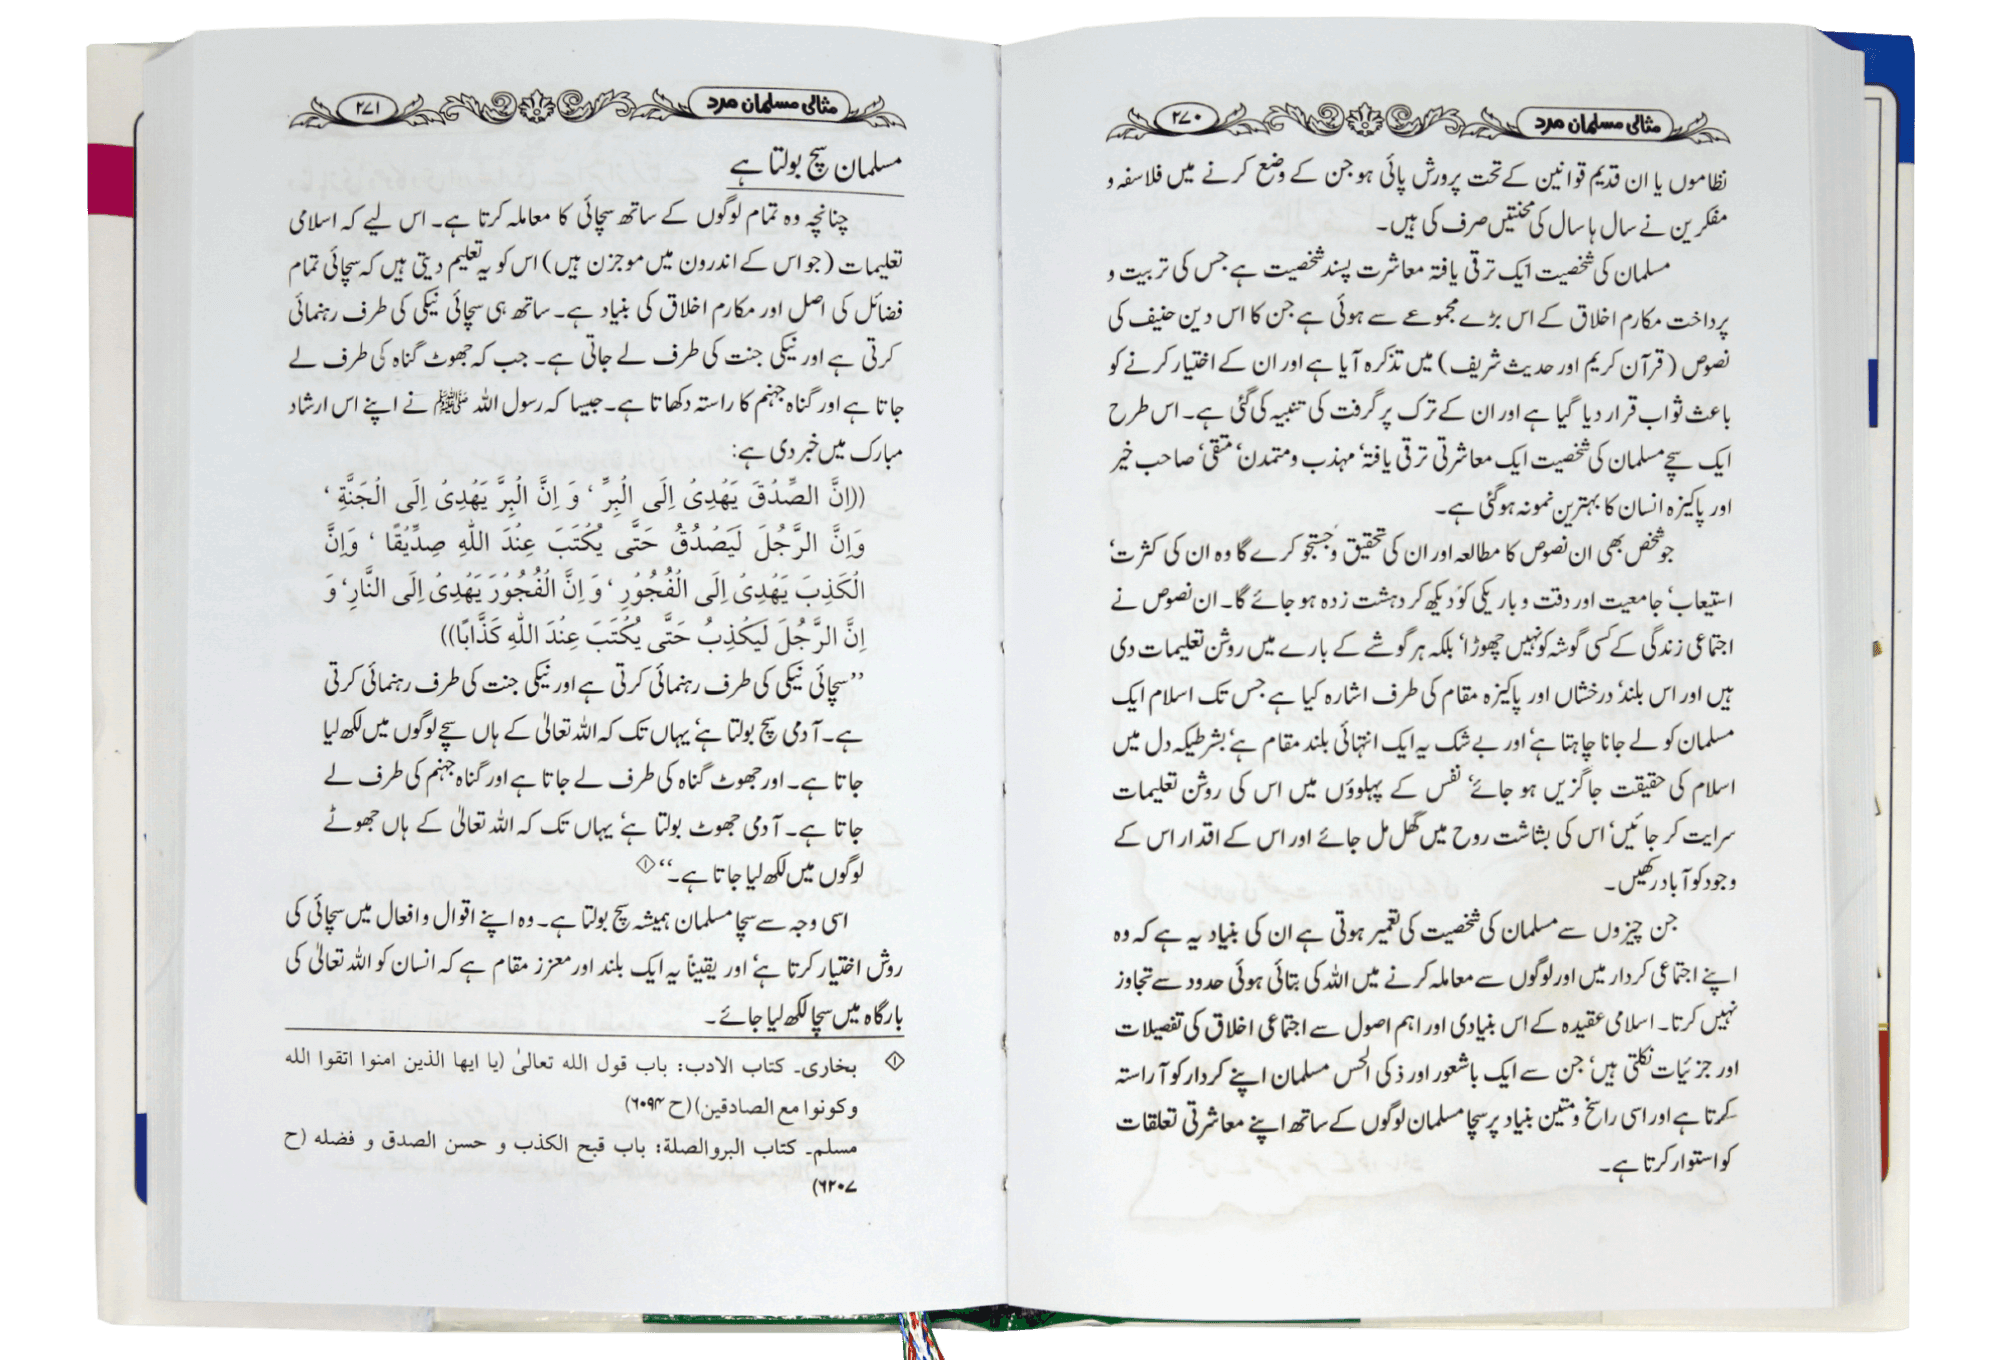 مثالی مسلمان مرد ۲۷۰
نظاموں یا ان قدیم قوانین کے تحت پرورش پائی ہو جن کے وضع کرنے میں فلاسفہ و
مفکرین نے سال ہا سال کی محنتیں صرف کی ہیں۔
مسلمان کی شخصیت ایک ترقی یافتہ معاشرت پسند شخصیت ہے جس کی تربیت و
پرداخت مکارم اخلاق کے اس بڑے مجموعے سے ہوئی ہے جن کا اس دین حنیف کی
نصوص (قرآن کریم اور حدیث شریف) میں تذکرہ آیا ہے اور ان کے اختیار کرنے کو
باعث ثواب قرار دیا گیا ہے اور ان کے ترک پر گرفت کی تنبیہ کی گئی ہے۔ اس طرح
ایک سچے مسلمان کی شخصیت ایک معاشرتی ترقی یافتہ‘ مہذب و متمدن‘ متقی‘ صاحب خیر
اور پاکیزہ انسان کا بہترین نمونہ ہو گئی ہے۔
جو شخص بھی ان نصوص کا مطالعہ اور ان کی تحقیق و جستجو کرے گا وہ ان کی کثرت‘
استیعاب‘ جامعیت اور دقت و باریکی کو دیکھ کر دہشت زدہ ہو جائے گا۔ ان نصوص نے
اجتماعی زندگی کے کسی گوشہ کو نہیں چھوڑا‘ بلکہ ہر گوشے کے بارے میں روشن تعلیمات دی
ہیں اور اس بلند‘ درخشاں اور پاکیزہ مقام کی طرف اشارہ کیا ہے جس تک اسلام ایک
مسلمان کو لے جانا چاہتا ہے‘ اور بے شک یہ ایک انتہائی بلند مقام ہے‘ بشرطیکہ دل میں
اسلام کی حقیقت جاگزیں ہو جائے‘ نفس کے پہلوؤں میں اس کی روشن تعلیمات
سرایت کر جائیں‘ اس کی بشاشت روح میں گھل مل جائے اور اس کے اقدار اس کے
وجود کو آباد رکھیں۔
جن چیزوں سے مسلمان کی شخصیت کی تعمیر ہوتی ہے ان کی بنیاد یہ ہے کہ وہ
اپنے اجتماعی کردار میں اور لوگوں سے معاملہ کرنے میں اللہ کی بتائی ہوئی حدود سے تجاوز
نہیں کرتا۔ اسلامی عقیدہ کے اس بنیادی اور اہم اصول سے اجتماعی اخلاق کی تفصیلات
اور جزئیات نکلتی ہیں‘ جن سے ایک باشعور اور ذکی الحس مسلمان اپنے کردار کو آراستہ
کرتا ہے اور اسی راسخ و متین بنیاد پر سچا مسلمان لوگوں کے ساتھ اپنے معاشرتی تعلقات
کو استوار کرتا ہے۔
مثالی مسلمان مرد ۲۷۱
مسلمان سچ بولتا ہے
چنانچہ وہ تمام لوگوں کے ساتھ سچائی کا معاملہ کرتا ہے۔ اس لیے کہ اسلامی
تعلیمات (جو اس کے اندرون میں موجزن ہیں) اس کو یہ تعلیم دیتی ہیں کہ سچائی تمام
فضائل کی اصل اور مکارم اخلاق کی بنیاد ہے۔ ساتھ ہی سچائی نیکی کی طرف رہنمائی
کرتی ہے اور نیکی جنت کی طرف لے جاتی ہے۔ جب کہ جھوٹ گناہ کی طرف لے
جاتا ہے اور گناہ جہنم کا راستہ دکھاتا ہے۔ جیسا کہ رسول اللہ ﷺ نے اپنے اس ارشاد
مبارک میں خبر دی ہے:
((اِنَّ الصِّدْقَ يَهْدِىْ اِلَى الْبِرِّ‘ وَ اِنَّ الْبِرَّ يَهْدِىْ اِلَى الْجَنَّةِ‘
وَاِنَّ الرَّجُلَ لَيَصْدُقُ حَتّٰى يُكْتَبَ عِنْدَ اللّٰهِ صِدِّيْقًا‘ وَاِنَّ
الْكَذِبَ يَهْدِىْ اِلَى الْفُجُوْرِ‘ وَ اِنَّ الْفُجُوْرَ يَهْدِىْ اِلَى النَّارِ‘ وَ
اِنَّ الرَّجُلَ لَيَكْذِبُ حَتّٰى يُكْتَبَ عِنْدَ اللّٰهِ كَذَّابًا))
’’سچائی نیکی کی طرف رہنمائی کرتی ہے اور نیکی جنت کی طرف رہنمائی کرتی
ہے۔ آدمی سچ بولتا ہے‘ یہاں تک کہ اللہ تعالیٰ کے ہاں سچے لوگوں میں لکھ لیا
جاتا ہے۔ اور جھوٹ گناہ کی طرف لے جاتا ہے اور گناہ جہنم کی طرف لے
جاتا ہے۔ آدمی جھوٹ بولتا ہے‘ یہاں تک کہ اللہ تعالیٰ کے ہاں جھوٹے
لوگوں میں لکھ لیا جاتا ہے۔‘‘ ۱
اسی وجہ سے سچا مسلمان ہمیشہ سچ بولتا ہے۔ وہ اپنے اقوال و افعال میں سچائی کی
روش اختیار کرتا ہے‘ اور یقیناً یہ ایک بلند اور معزز مقام ہے کہ انسان کو اللہ تعالیٰ کی
بارگاہ میں سچا لکھ لیا جائے۔
۱ بخاری۔ کتاب الادب: باب قول الله تعالیٰ (یا ایها الذین امنوا اتقوا الله
وکونوا مع الصادقین) (ح ۶۰۹۴)
مسلم۔ کتاب البر والصلة: باب قبح الکذب و حسن الصدق و فضله (ح
۲۶۰۷)